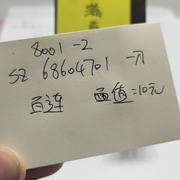 8001-2
SZ 68604701 一刀
百连 面值=10元